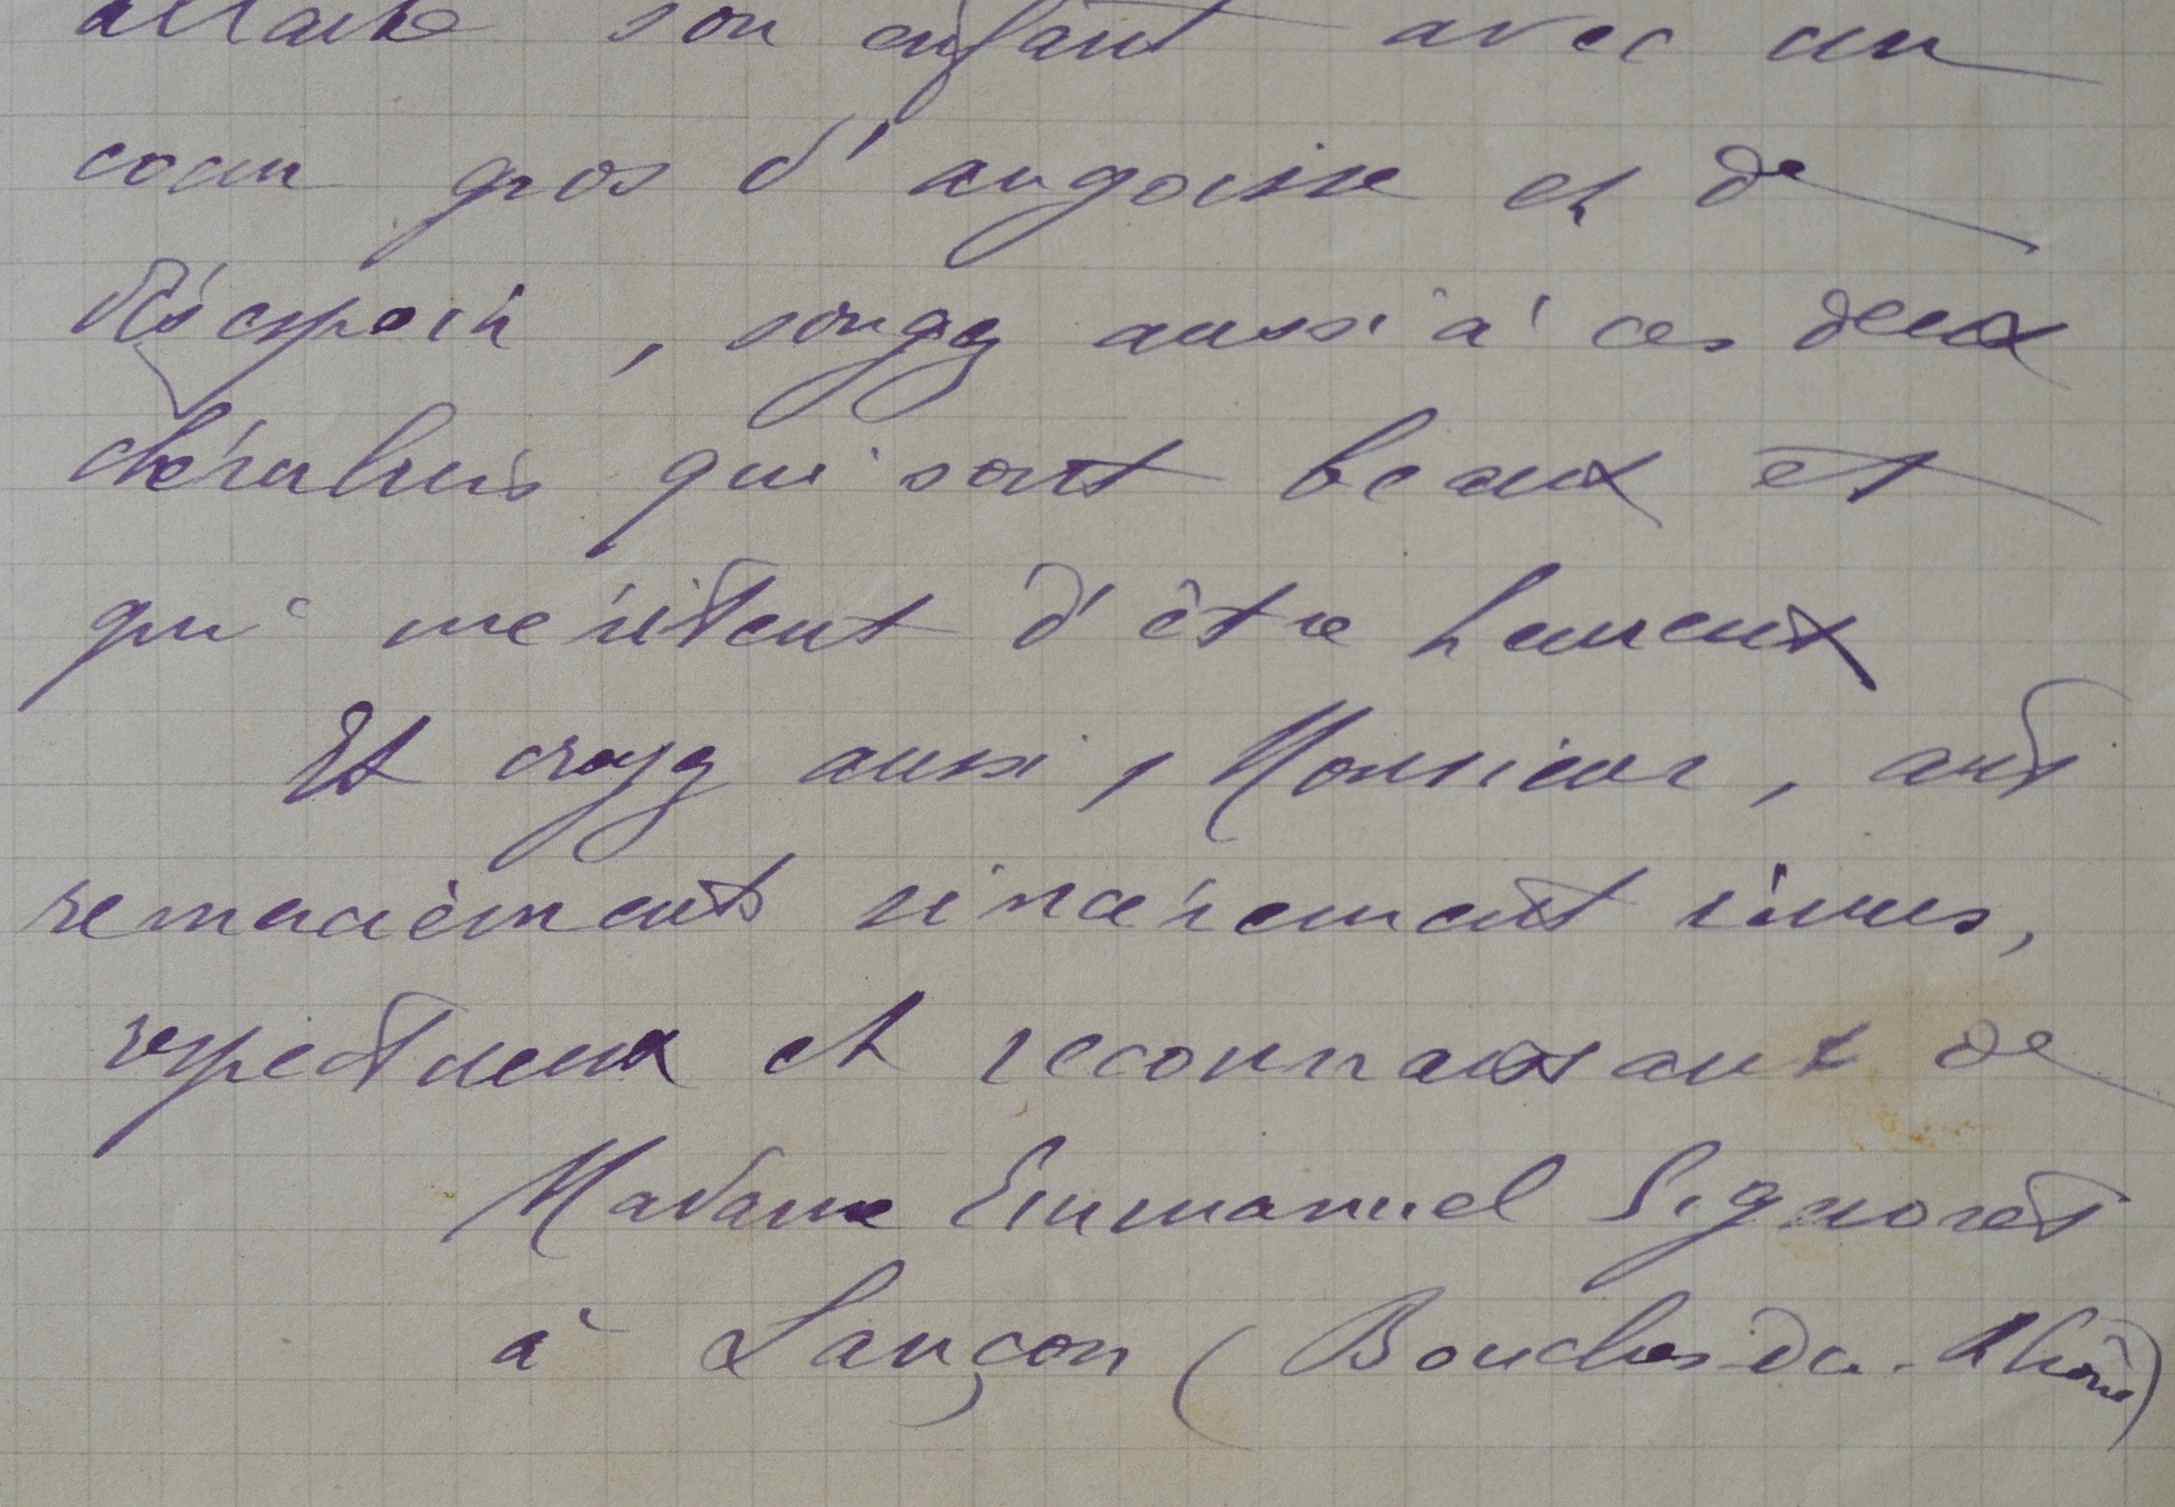 allaite son enfant avec un
cœur gros d'angoisse et de
désespoir, songez aussi à ces deux
chérubins qui sont beaux et
qui méritent d'être heureux
Et croyez aussi, Monsieur, aux
remerciements sincèrement émus,
respectueux et reconnaissants de
Madame Emmanuel Signoret
à Lançon (Bouches-du-Rhône)